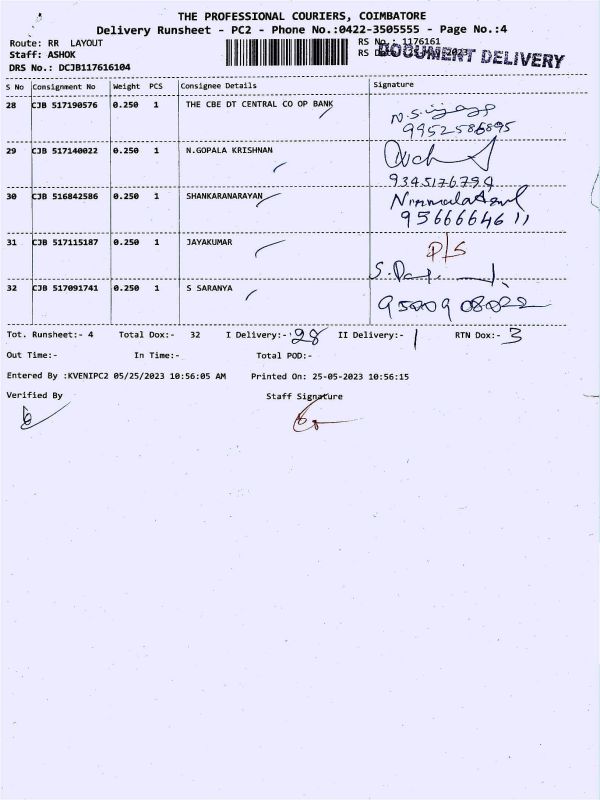 THE PROFESSIONAL COURIERS, COIMBATORE
Delivery Runsheet - PC2 - Phone No.:0422-3505555 - Page No.:4
Route: RR LAYOUT
RS No.: 1176161
Staff: ASHOK
RS
DOCUMENT DELIVERY
DRS No.: DCJB117616104
S No Consignment No Weight PCS Consignee Details Signature
28 CJB 517190576 0.250 1 THE CBE DT CENTRAL CO OP BANK
9952586895
29 CJB 517140022 0.250 1 N.GOPALA KRISHNAN
9345176799
30 CJB 516842586 0.250 1 SHANKARANARAYAN
9566664611
31 CJB 517115187 0.250 1 JAYAKUMAR D/S
32 CJB 517091741 0.250 1 S SARANYA
Tot. Runsheet:- 4 Total Dox:- 32 I Delivery:- 28 II Delivery:- 1 RTN Dox:- 3
Out Time:- In Time:- Total POD:-
Entered By :KVENIPC2 05/25/2023 10:56:05 AM Printed On: 25-05-2023 10:56:15
Verified By Staff Signature